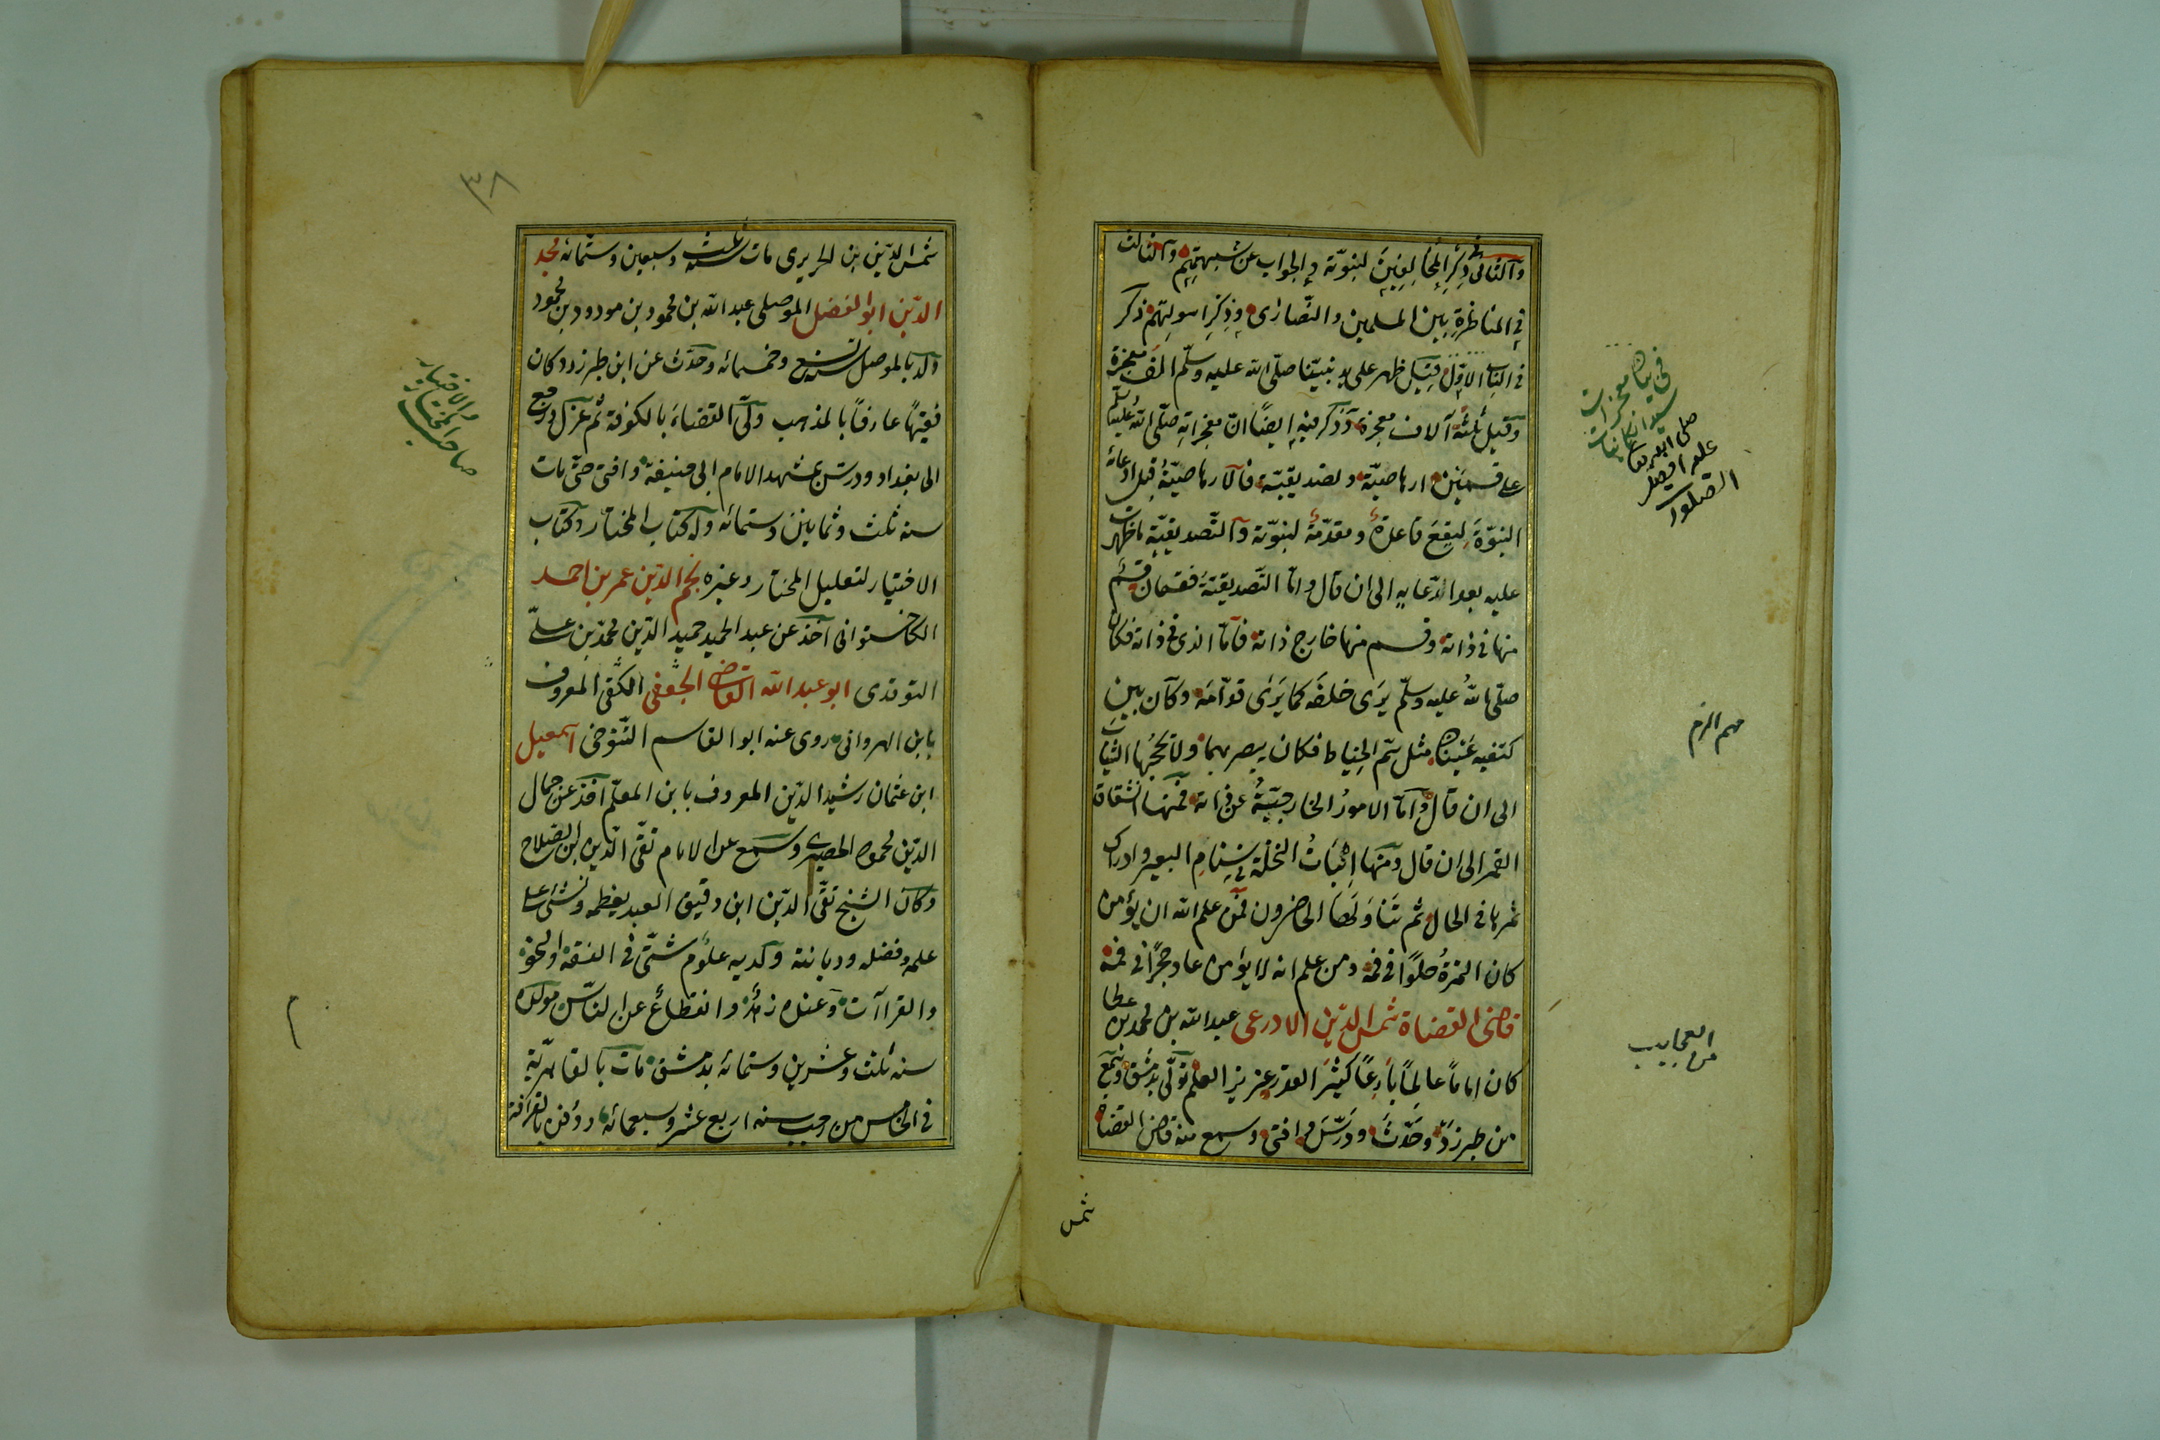 والثاني في ذكر المخالفين لنبوته والجواب عن شبهتهم والثالث
في المناظرة بين المسلمين والنصارى وذكر اسولتهم ذكر
في الباب الاول قيل ظهر على يد نبينا صلى الله عليه وسلم الف معجزة
وقيل ثلثة آلاف معجزة وذكر فيه ايضا ان معجزاته صلى الله عليه وسلم
على قسمين ارهاصية وتصديقية فالارهاصية قبل ادعائه
النبوة ليقع قاعدة ومقدمة لنبوته والتصديقية ما ظهرت
عليه بعد ادعايه الى ان قال واما التصديقية فقسمان قسم
منها في ذاته وقسم منها خارج ذاته فاما الذي في ذاته فكان
صلى الله عليه وسلم يرى خلفه كما يرى قدامه وكان بين
كتفيه عينان مثل سم الخياط فكان يبصر بهما ولا تحجبها الثياب
الى ان قال واما الامور الخارجية عن ذاته فمنها انشقاق
القمر الى ان قال ومنها اثبات النخلة في سنام البعير وادراك
ثمرها في الحال ثم تناولها الحاضرون فمن علم الله ان يؤمن
كان التمرة حلوا في فمه ومن علم انه لا يؤمن عاد حجرا في فمه
قاضي القضاة شمس الدين الادرعي عبد الله بن محمد بن عطا
كان اماما عالما بارعا كثير القدر عزيز العلم تولى بدمشق وسمع
من طبرزد وحدث ودرس وافتى وسمع منه قاضي القضاة
شمس
في بيان معجزات
سيد الكائنات
صلى الله تعالى
عليه افضل
الصلوات
مهم الزم
من العجايب
٣٨
شمس الدين بن الحريري مات سنة ثلث وسبعين وستمائه مجد
الدين ابو الفضل الموصلي عبد الله بن محمود بن مودود بن محمود
ولد بالموصل سنة تسع وخمسمائه وحدث عن ابن طبرزد وكان
فقيها عارفا بالمذهب ولي القضاء بالكوفة ثم عزل ورجع
الى بغداد ودرس بمشهد الامام ابي حنيفة وافتى حتى مات
سنه ثلث وثمانين وستمائه وله كتاب المختار وكتاب
الاختيار لتعليل المختار وغيره نجم الدين عمر بن احمد
الكاخشتواني اخذ عن عبد الحميد حميد الدين محمد بن علي
النوقدي ابو عبد الله القاضي الجعفي الكفي المعروف
بابن الهرواني روى عنه ابو القاسم التنوخي اسمعيل
ابن عثمان رشيد الدين المعروف بابن المعلم اخذ عن جمال
الدين محمود الحصيري وسمع عن الامام تقي الدين ابن الصلاح
وكان الشيخ تقي الدين ابن دقيق العيد يعظمه وثنى على
علمه وفضله وديانته ولديه علوم شتى في الفقه والنحو
والقراآت وعنده زهد وانقطاع عن الناس مولده
سنه ثلث وعشرين وستمائه بدمشق مات بالقاهرية
في الخامس من رجب سنه اربع عشر وسبعمائه ودفن بالقرافة
صاحب المختار
والاختيار